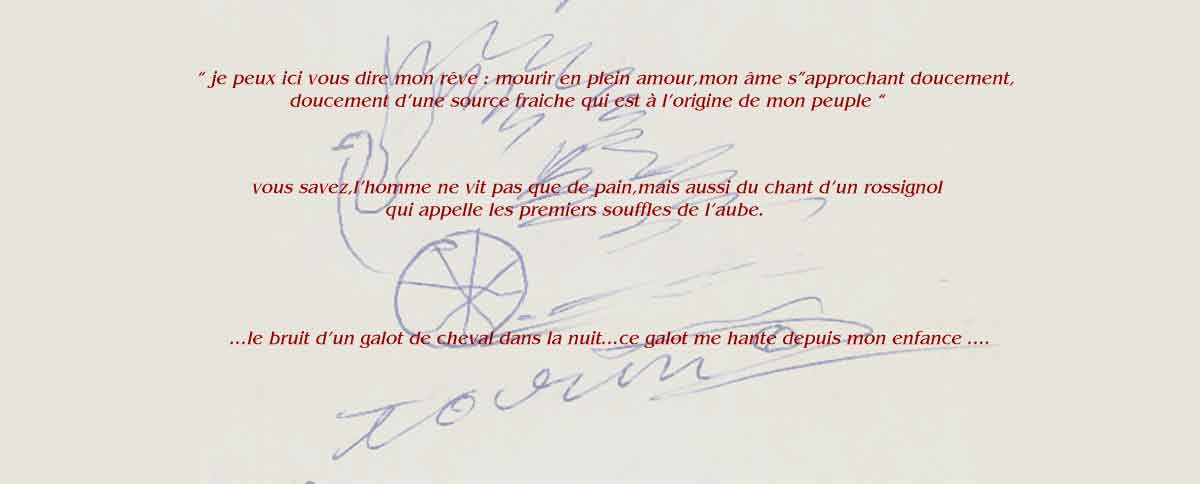 “ je peux ici vous dire mon rêve : mourir en plein amour,mon âme s”approchant doucement,
doucement d’une source fraiche qui est à l’origine de mon peuple “
vous savez,l’homme ne vit pas que de pain,mais aussi du chant d’un rossignol
qui appelle les premiers souffles de l’aube.
...le bruit d’un galot de cheval dans la nuit...ce galot me hante depuis mon enfance ....